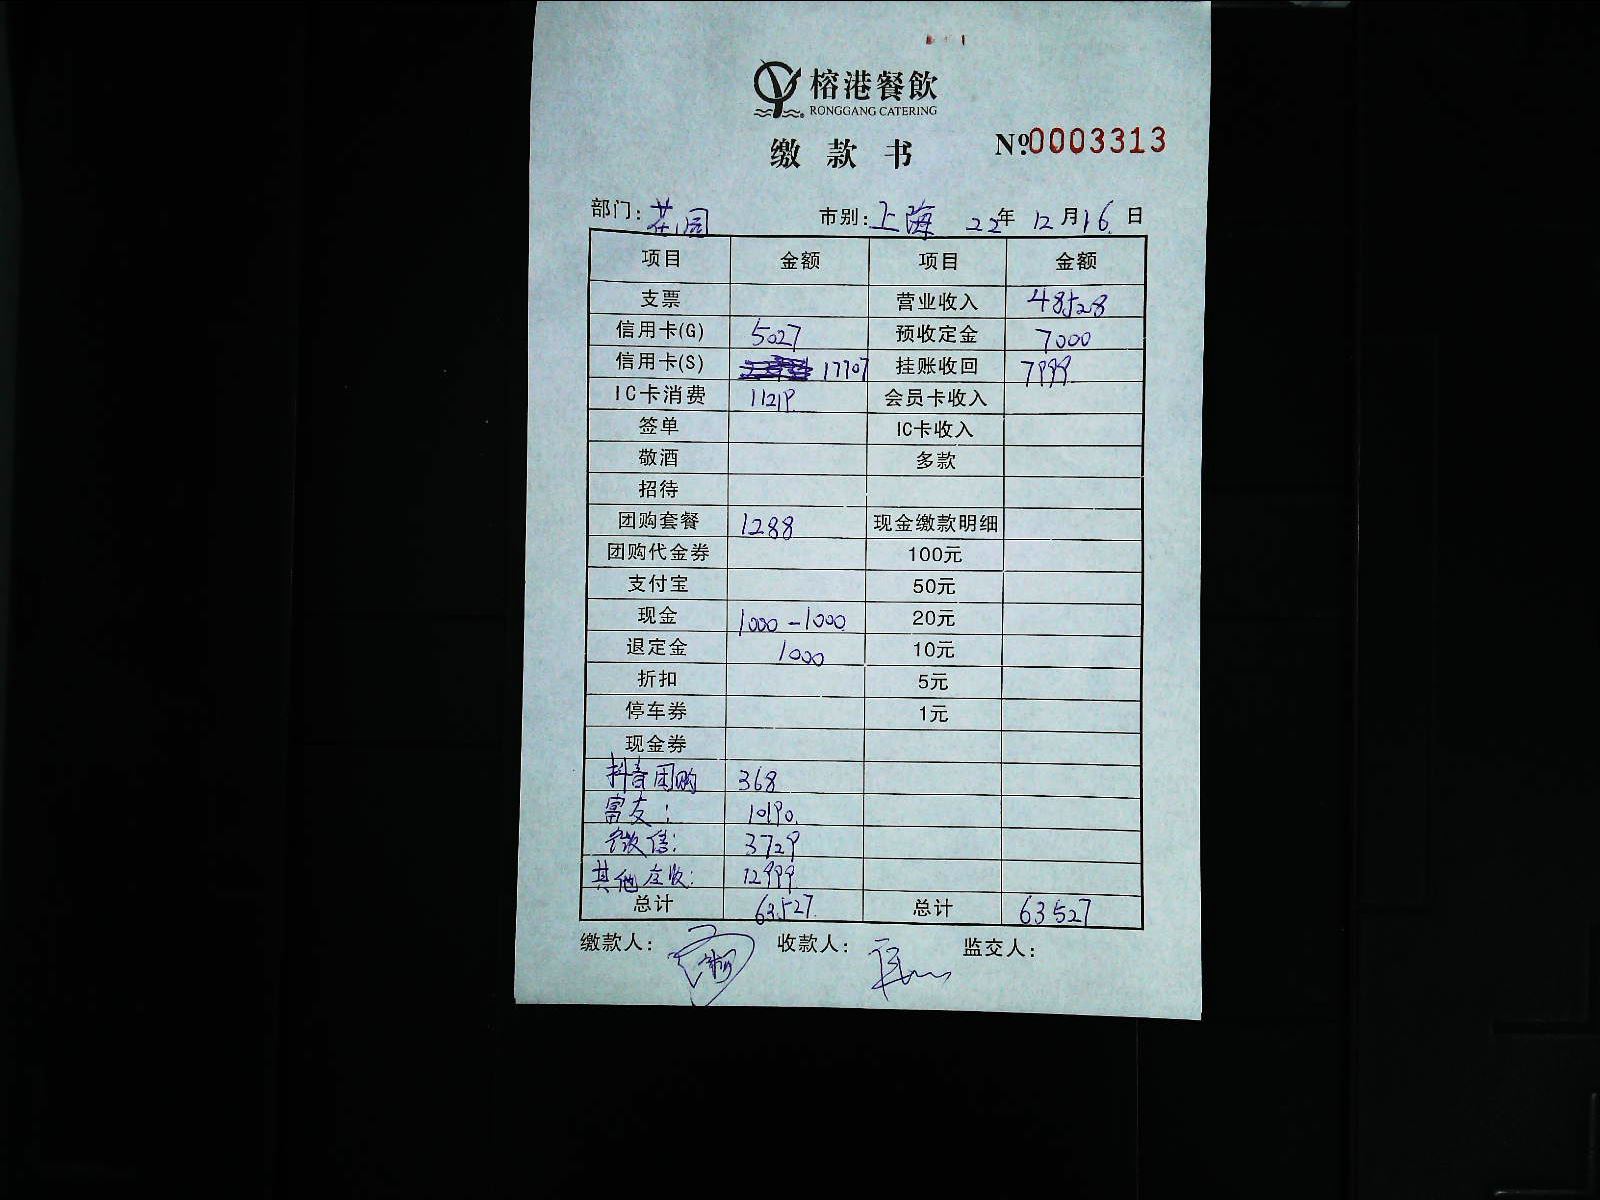 榕港餐飲
RONGGANG CATERING
缴款书 №0003313
部门: 花园 市别: 上海 22年 12月16日
项目 金额 项目 金额
支票 营业收入 48528
信用卡(G) 5027 预收定金 7000
信用卡(S) 17707 挂账收回 7999
IC卡消费 11219 会员卡收入
签单 IC卡收入
敬酒 多款
招待
团购套餐 1288 现金缴款明细
团购代金券 100元
支付宝 50元
现金 1000-1000 20元
退定金 1000 10元
折扣 5元
停车券 1元
现金券
抖音团购 368
富友: 10190.
微信: 3729
其他应收: 12999
总计 63527. 总计 63527
缴款人: 收款人: 监交人: